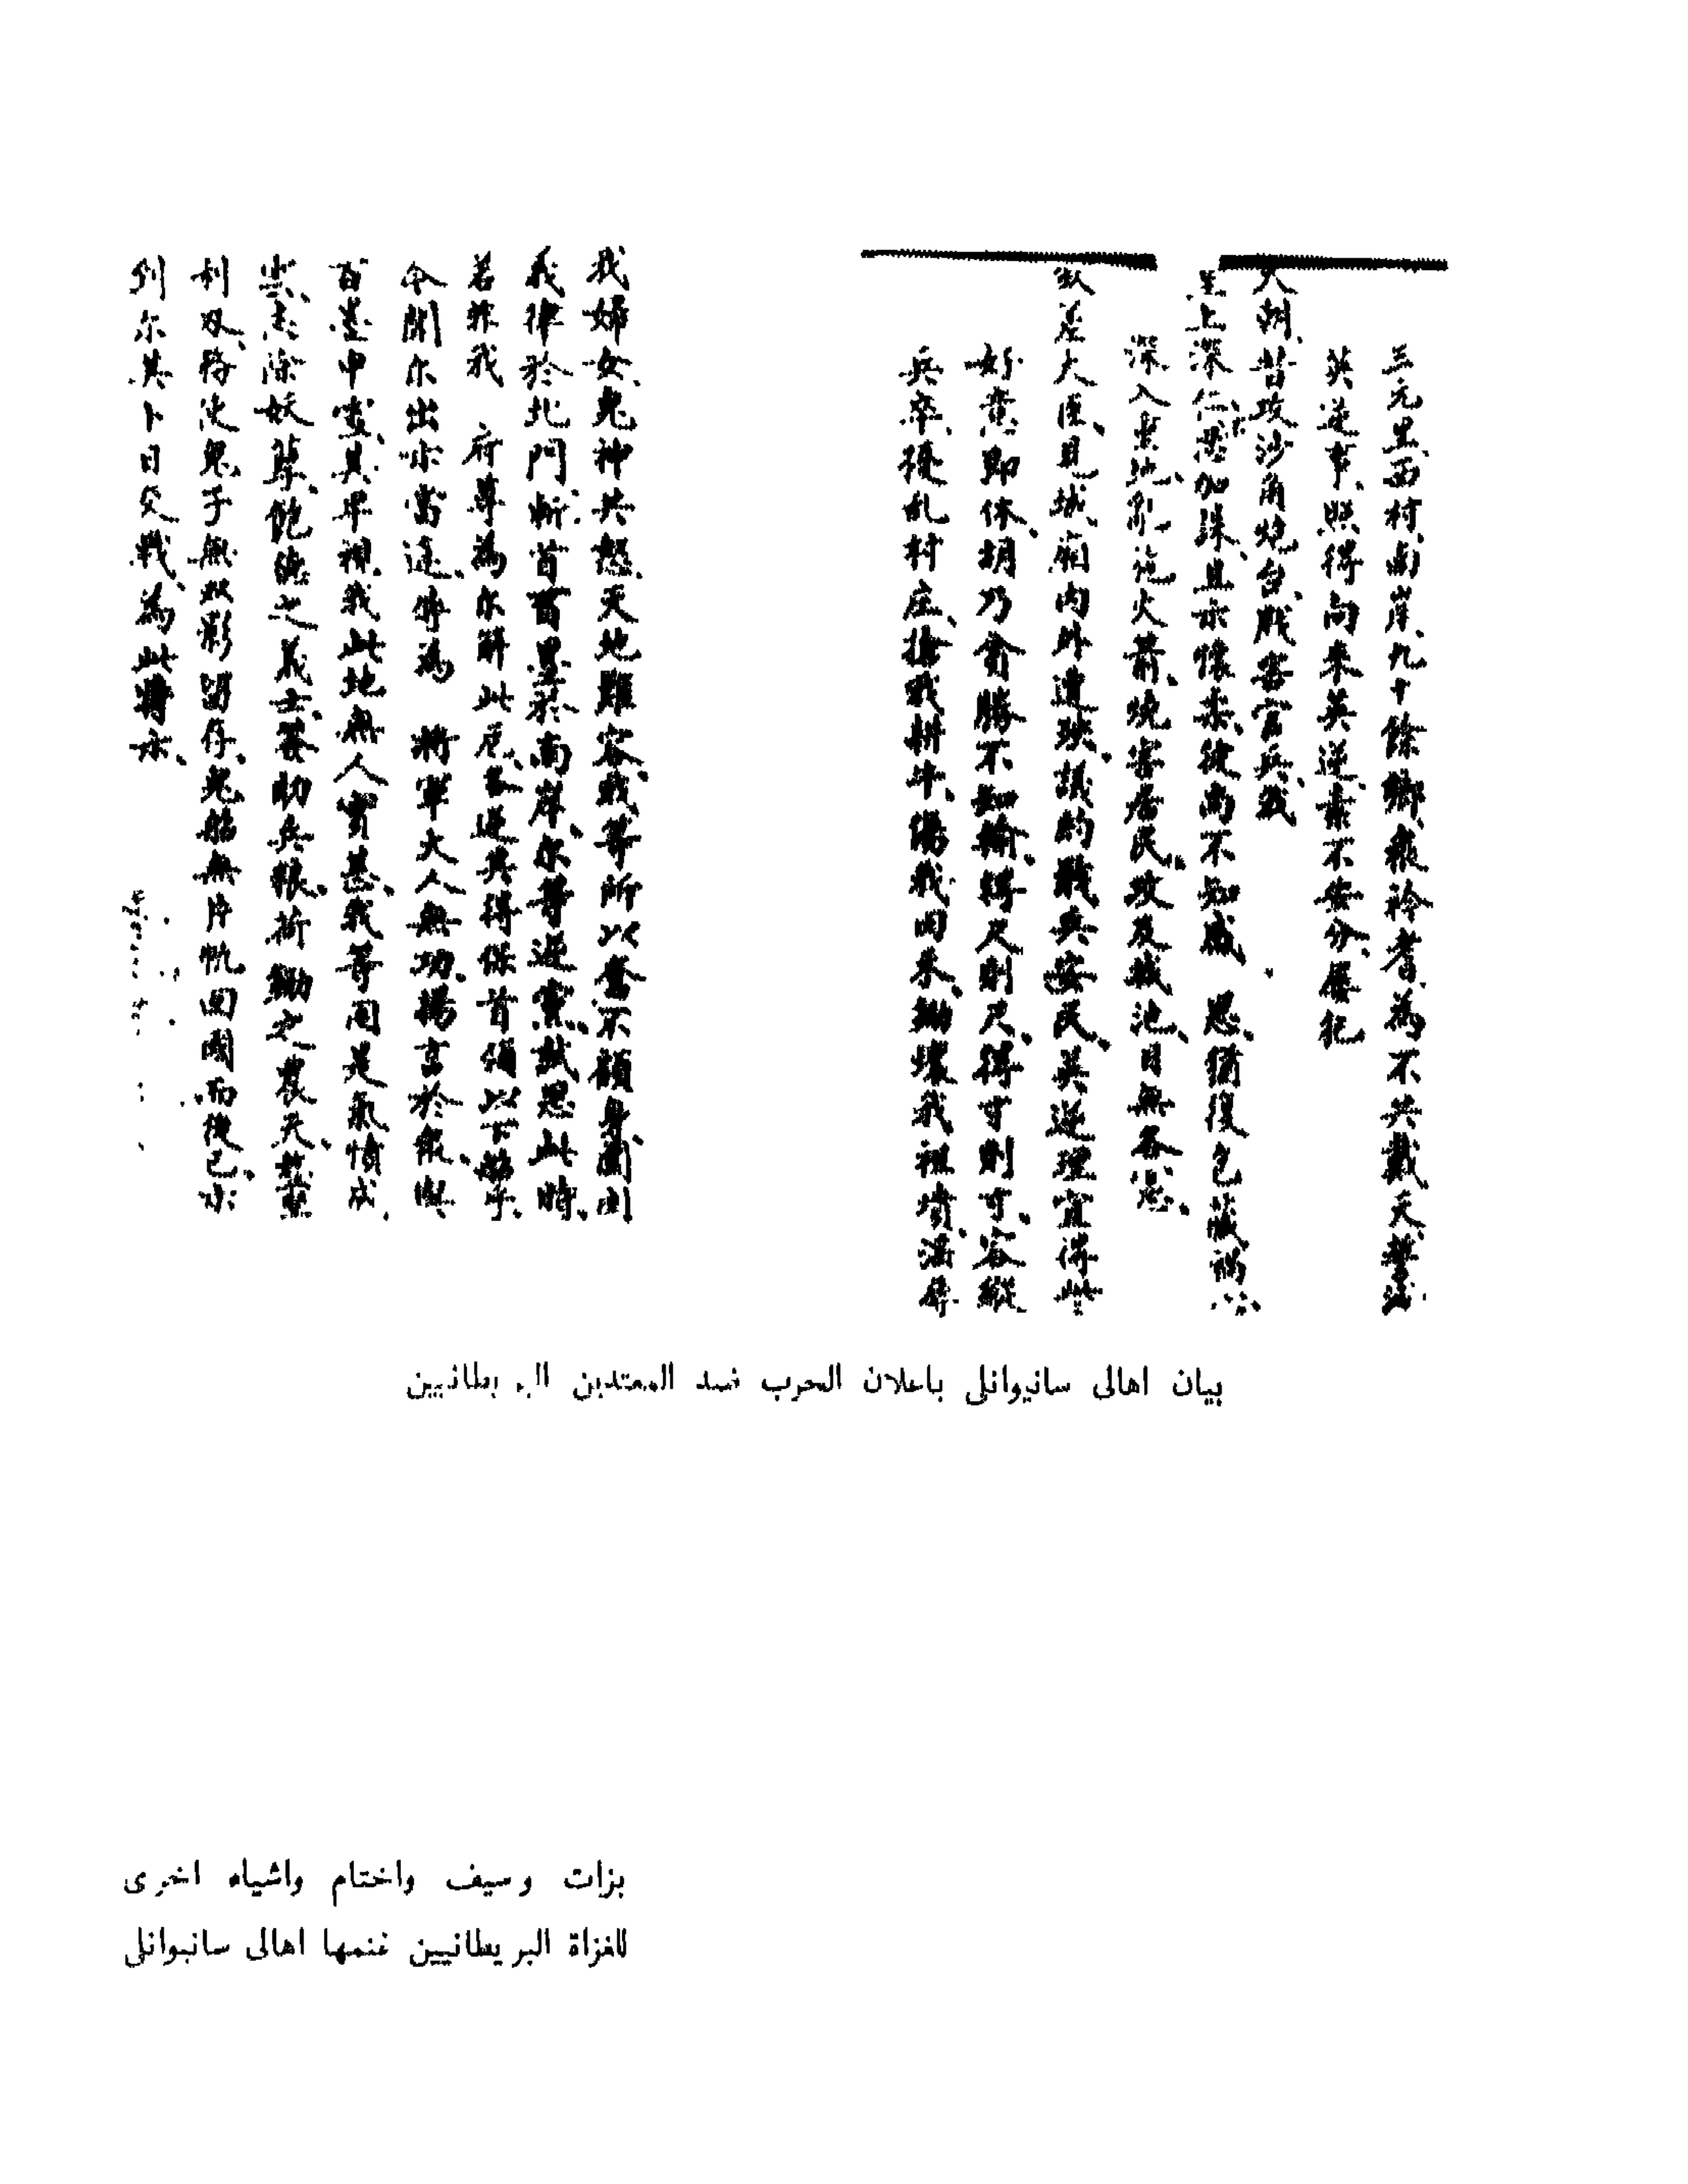 三元里西村南岸九十餘鄉衆衿耆為不共戴天誓滅
英逆事照得向來英逆素不安分屢犯
天朝昔攻沙角炮台戕害官兵我
皇上深仁加殊且示懷柔彼尚不知感 恩猶復包藏禍
深入重地乱施火箭燒害居民攻及城池目無各憲
欽差大臣見城廂内外遭殃議約戢兵安民英逆理宜得些
好意即休胡乃貪勝不知輸得尺則尺得寸則寸容縱
兵卒擾乱村庄搶我耕牛傷我田禾鋤壞我祖墳淫辱
我婦女鬼神共怒天地難容我等所以奮不顧身圍困
義律於北門斬首於南岸尔等逆黨試思此時
若非我 府尊為尔解此危各逆其得保首領以下船乎
今聞尔出示當途佈為 將軍大人無功揚言於衆與
百其卑視我此地無人實甚我等同是氣憤成
志除妖孽飽德之義士助兵粮荷鋤之農夫
利刃務使鬼子無隻影留存鬼船無片帆回國而後已示
到尔其卜日交戰為此特示
بيان اهالى سانيوانلى باعلان الحرب ضد المعتدين البريطانيين
بزات وسيف واختام واشياء اخرى
للغزاة البريطانيين غنمها اهالى سانيوانلى